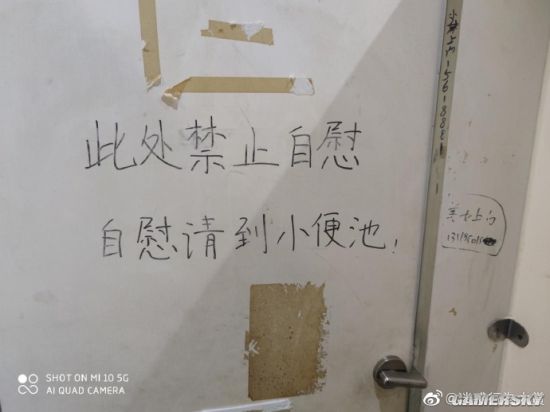 此处禁止自慰
自慰请到小便池!
美女上门
SHOT ON MI 10 5G
AI QUAD CAMERA
GAMERSKY